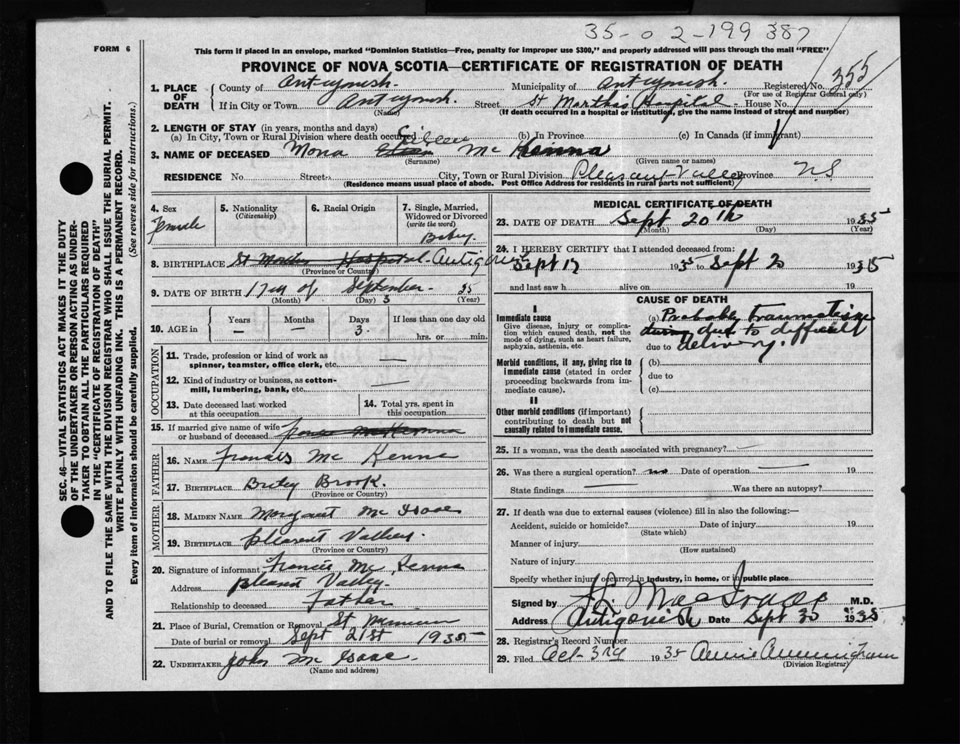 35-02-199387
FORM 6
This form if placed in an envelope, marked "Dominion Statistics—Free, penalty for improper use $300," and properly addressed will pass through the mail "FREE"
PROVINCE OF NOVA SCOTIA—CERTIFICATE OF REGISTRATION OF DEATH
1. PLACE OF DEATH
County of Antigonish. Municipality of Antigonish. Registered No. 355
(For use of Registrar General only)
If in City or Town Antigonish. Street St Marthas Hospital House No.
(Name) (If death occurred in a hospital or institution, give the name instead of street and number)
2. LENGTH OF STAY (in years, months and days)
(a) In City, Town or Rural Division where death occurred (b) In Province (c) In Canada (if immigrant)
Eileen
3. NAME OF DECEASED Mona Mc Kenna
(Surname) (Given name or names)
RESIDENCE No. Street City, Town or Rural Division Pleasant Valley Province N.S
(Residence means usual place of abode. Post Office Address for residents in rural parts not sufficient)
4. Sex
Female
5. Nationality
(Citizenship)
6. Racial Origin
7. Single, Married, Widowed or Divorced
(write the word)
Baby.
8. BIRTHPLACE St Marthas Hospital. Antigonish
(Province or Country)
9. DATE OF BIRTH 17 day of September 35
(Month) (Day) 3 (Year)
10. AGE in
Years Months Days If less than one day old
— — 3. hrs. or min.
OCCUPATION
11. Trade, profession or kind of work as spinner, teamster, office clerk, etc. —
12. Kind of industry or business, as cotton-mill, lumbering, bank, etc. —
13. Date deceased last worked at this occupation
14. Total yrs. spent in this occupation
15. If married give name of wife or husband of deceased
FATHER
16. NAME Francis Mc Kenna
17. BIRTHPLACE Briley Brook.
(Province or Country)
MOTHER
18. MAIDEN NAME Margaret Mc Isaac
19. BIRTHPLACE Pleasent Valley.
(Province or Country)
20. Signature of informant Francis Mc Kenna
Address Pleasant Valley.
Relationship to deceased Father
21. Place of Burial, Cremation or Removal St
Date of burial or removal Sept 21st 1935
22. UNDERTAKER John Mc Isaac.
(Name and address)
MEDICAL CERTIFICATE OF DEATH
23. DATE OF DEATH Sept 20th 1935
(Month) (Day) (Year)
24. I HEREBY CERTIFY that I attended deceased from:
Sept 17 1935 to Sept 20 1935
and last saw h alive on 19
CAUSE OF DEATH
I
Immediate cause
Give disease, injury or complication which caused death, not the mode of dying, such as heart failure, asphyxia, asthenia, etc.
(a) Probably traumatism
during due to difficult
due to delivery.
Morbid conditions, if any, giving rise to immediate cause (stated in order proceeding backwards from immediate cause).
(b)
due to
(c)
II
Other morbid conditions (if important) contributing to death but not causally related to immediate cause.
25. If a woman, was the death associated with pregnancy?
26. Was there a surgical operation? no Date of operation — 19
State findings — Was there an autopsy?
27. If death was due to external causes (violence) fill in also the following:—
Accident, suicide or homicide? Date of injury 19
(State which)
Manner of injury
(How sustained)
Nature of injury
Specify whether injury occurred in industry, in home, or in public place
Signed by MacIsaac M.D.
Address Antigonish Date Sept 30 1935
28. Registrar's Record Number
29. Filed Oct-3rd 1935 Annie Cunningham
(Division Registrar)
SEC. 46—VITAL STATISTICS ACT MAKES IT THE DUTY
OF THE UNDERTAKER OR PERSON ACTING AS UNDERTAKER
TO OBTAIN ALL THE PARTICULARS REQUIRED
IN THE "CERTIFICATE OF REGISTRATION OF DEATH"
AND TO FILE THE SAME WITH THE DIVISION REGISTRAR WHO SHALL ISSUE THE BURIAL PERMIT.
WRITE PLAINLY WITH UNFADING INK. THIS IS A PERMANENT RECORD.
Every item of information should be carefully supplied. (See reverse side for instructions.)